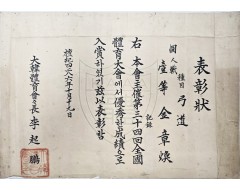 表彰狀
種目 弓道
個人戰
壹等 金章煥
記錄
右 本會主催第三十四回全國
體育大會에서優秀한成績으로
入賞하였기玆以表彰함
檀紀四二八六年十月十九日
大韓體育會會長 李起鵬